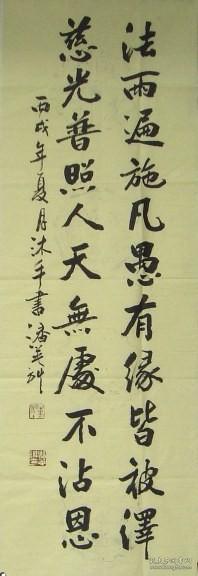 法雨遍施凡愚有緣皆被澤
慈光普照人天無處不沾恩
丙戌年夏月沐手書潘英